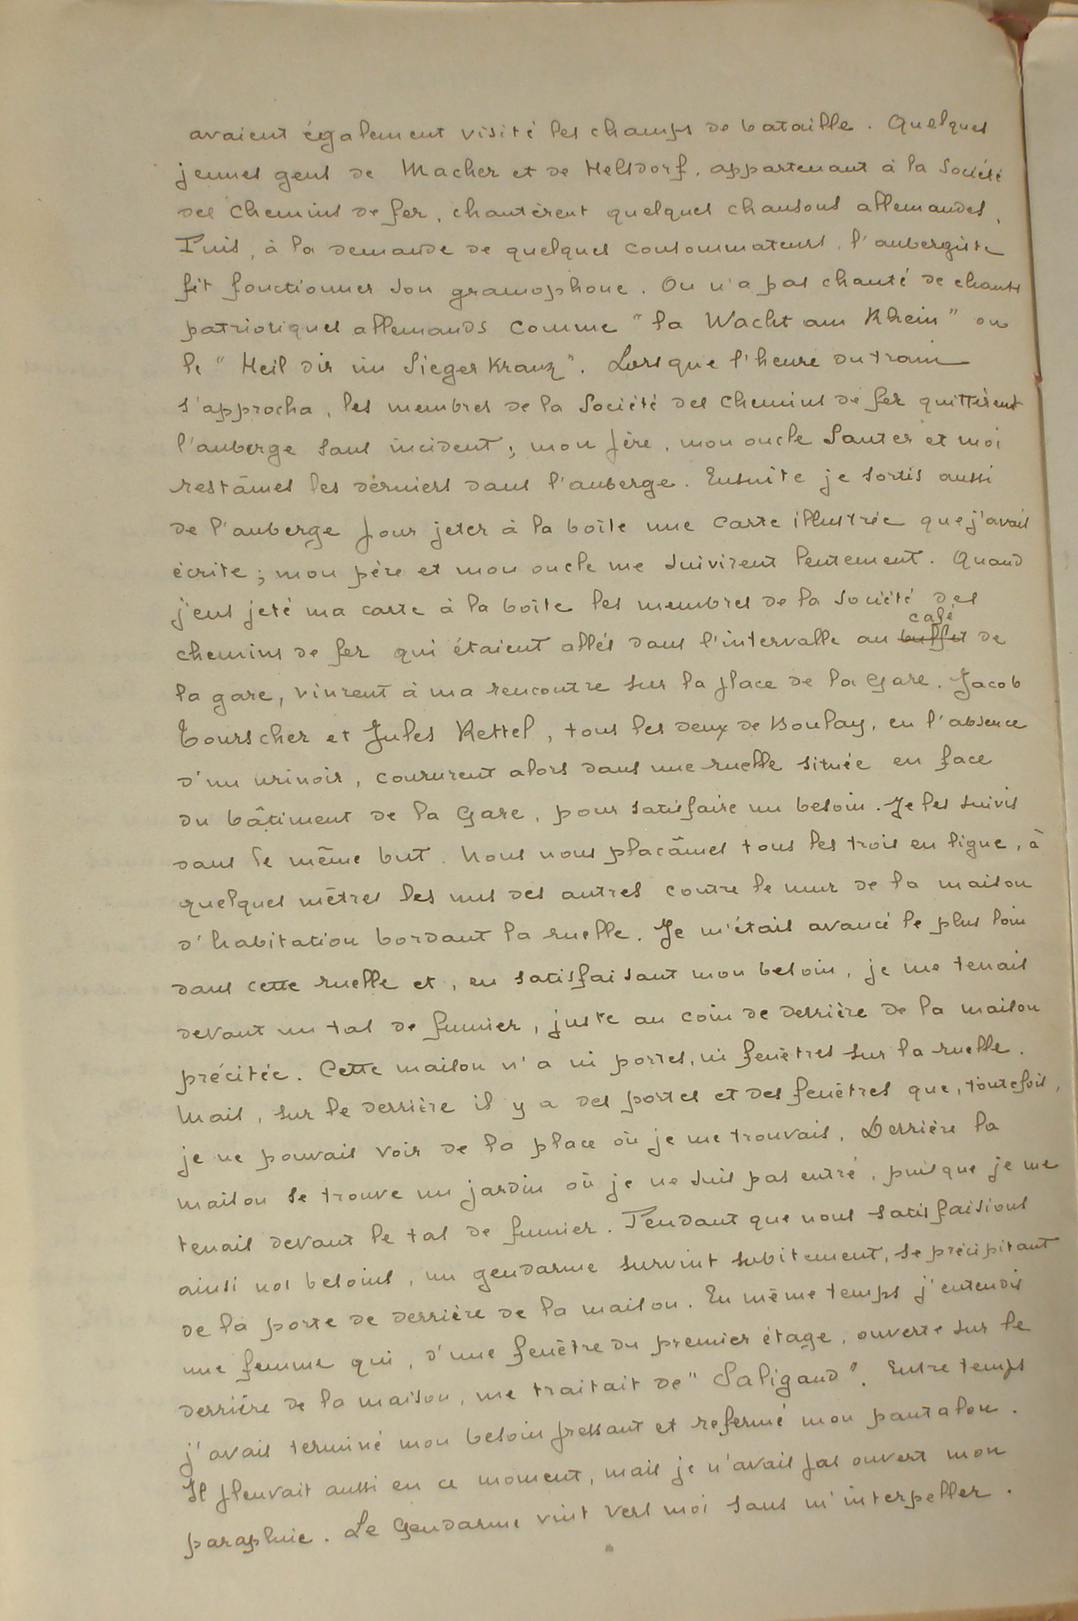 avaient également visité les champs de bataille. Quelques
jeunes gens de Macher et de Helsdorf, appartenant à la Société
des Chemins de fer, chantèrent quelques chansons allemandes.
Puis, à la demande de quelques consommateurs, l'aubergiste
fit fonctionner son gramophone. On n'a pas chanté de chants
patriotiques allemands comme "la Wacht am Rhein" ou
le "Heil dir im Sieger Kranz". Lorsque l'heure du train
s'approcha, les membres de la Société des Chemins de fer quittèrent
l'auberge sans incident; mon père, mon oncle Sauter et moi
restâmes les derniers dans l'auberge. Ensuite je sortis aussi
de l'auberge pour jeter à la boîte une carte illustrée que j'avais
écrite; mon père et mon oncle me suivirent lentement. Quand
j'eus jeté ma carte à la boîte les membres de la société des
chemins de fer qui étaient allés dans l'intervalle au buffet café de
la gare, vinrent à ma rencontre sur la place de la Gare. Jacob
Tourscher et Jules Kettel, tous les deux de Boulay, en l'absence
d'un urinoir, coururent alors dans une ruelle située en face
du bâtiment de la Gare, pour satisfaire un besoin. Je les suivis
dans le même but. Nous nous placâmes tous les trois en ligne, à
quelques mètres les uns des autres contre le mur de la maison
d'habitation bordant la ruelle. Je m'étais avancé le plus loin
dans cette ruelle et, en satisfaisant mon besoin, je me tenais
devant un tas de fumier, juste au coin de derrière de la maison
précitée. Cette maison n'a ni portes, ni fenêtres sur la ruelle.
Mais, sur le derrière il y a des portes et des fenêtres que, toutefois,
je ne pouvais voir de la place où je me trouvais. Derrière la
maison se trouve un jardin où je ne suis pas entré, puisque je me
tenais devant le tas de fumier. Pendant que nous satisfaisions
ainsi nos besoins, un gendarme survint subitement, se précipitant
de la porte de derrière de la maison. En même temps j'entendis
une femme qui, d'une fenêtre du premier étage, ouverte sur le
derrière de la maison, me traitait de "Saligaud". Entre temps
j'avais terminé mon besoin pressant et refermé mon pantalon.
Il pleuvait aussi en ce moment, mais je n'avais pas ouvert mon
parapluie. Le Gendarme vint vers moi sans m'interpeller.